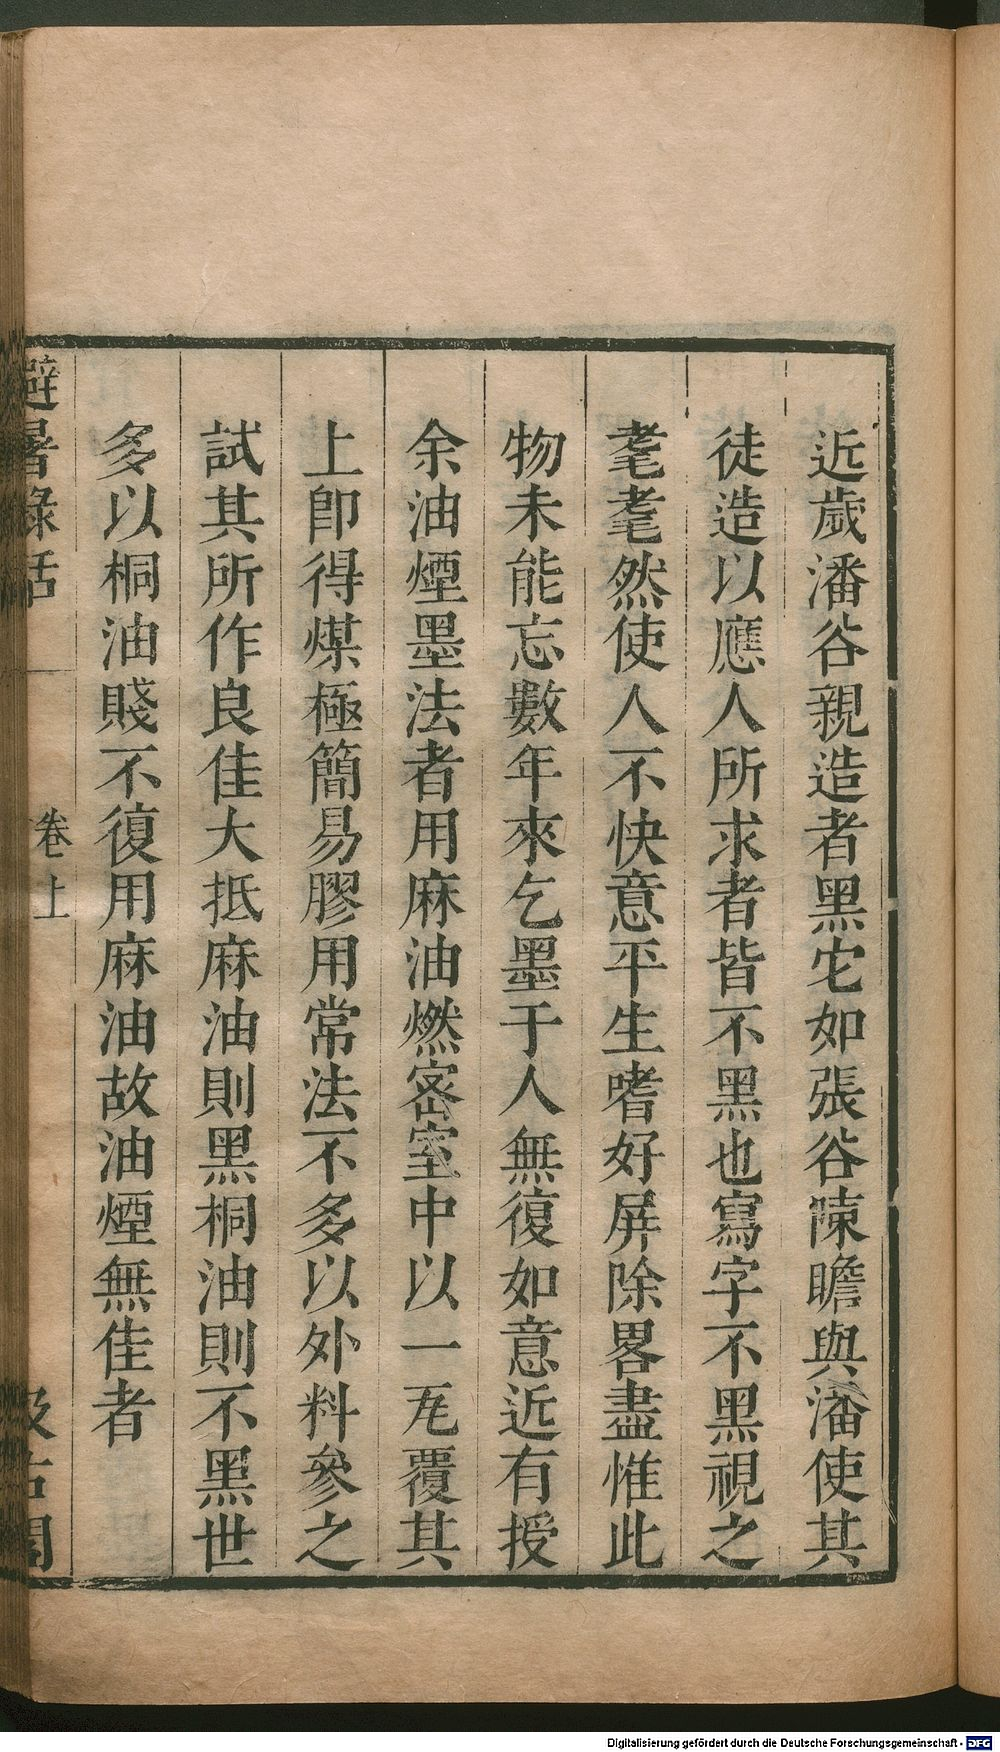 近歲潘谷親造者黑它如張谷陳瞻與潘使其
徒造以應人所求者皆不黑也寫字不黑視之
耄耄然使人不快意平生嗜好屏除畧盡惟此
物未能忘數年來乞墨于人無復如意近有授
余油煙墨法者用麻油燃密室中以一瓦覆其
上卽得煤極簡易膠用常法不多以外料參之
試其所作良佳大抵麻油則黑桐油則不黑世
多以桐油賤不復用麻油故油煙無佳者
避暑錄話
卷上
汲古閣
Digitalisierung gefördert durch die Deutsche Forschungsgemeinschaft - DFG